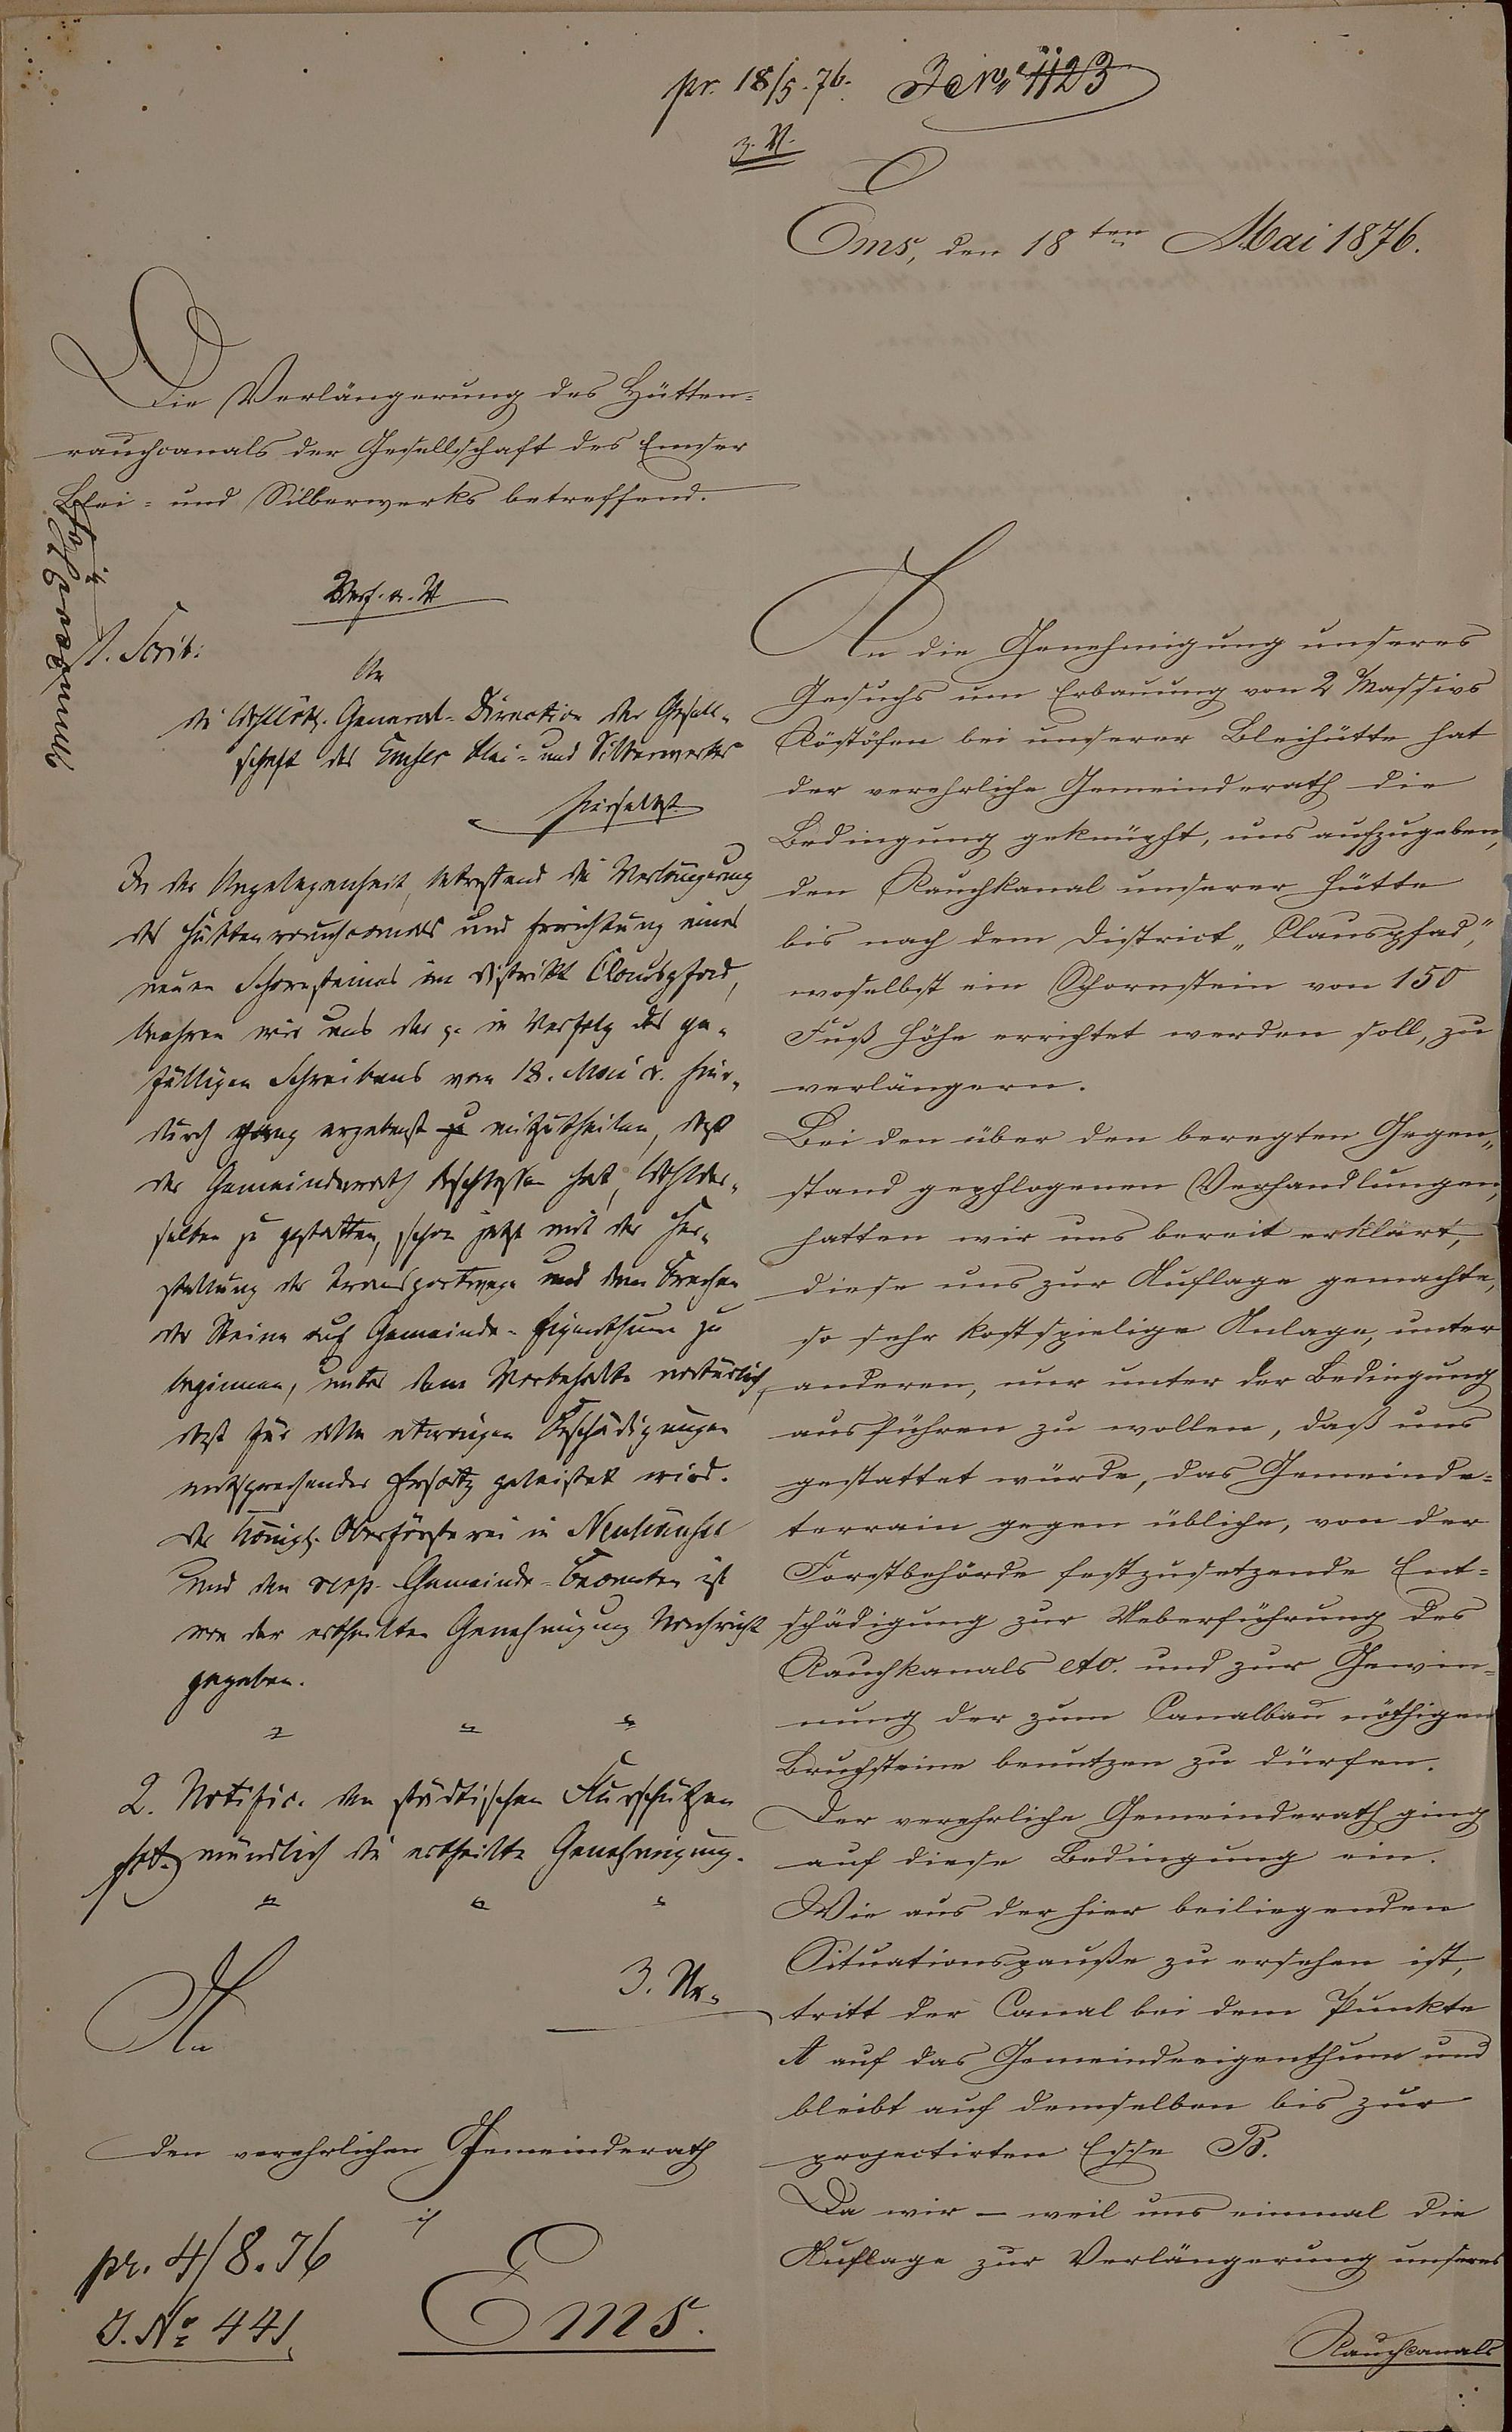 pr. 18/5.76. J. No. 1123
z. N.
Ems, den 18ten Mai 1876.
Die Verlängerung des Hütten-
rauchcanals der Gesellschaft des Emser
Blei- und Silberwerks betreffend.
1. Scrib:
An
die Wohllöbl. General-Direction der Gesell-
schaft des Emser Blei- und Silberwerkes
hierselbst
In der Angelegenheit, betreffend die Verlängerung
des Hüttenrauchcanals und Errichtung eines
neuen Schornsteines im Distrikt Clauspfad,
beehren wir uns der p. in Verfolg des ge-
fälligen Schreibens vom 18. Mai cr. hier-
durch ganz ergebenst zu mitzutheilen, daß
der Gemeinderath beschlossen hat, Wohlder-
selben zu gestatten, schon jetzt mit der Her-
stellung der Transportwege und dem Brechen
der Steine auf Gemeinde-Eigenthum zu
beginnen, unter dem Vorbehalte natürlich,
daß für alle etwaigen Beschädigungen
entsprechender Ersatz geleistet wird.
Der Königl. Oberförsterei in Neuhäusel
und den resp. Gemeinde-Beamten ist
von der ertheilten Genehmigung Nachricht
gegeben.
2. Notific. den städtischen Flurschützen
mündlich die ertheilte Genehmigung.
3. Nr.
An
den verehrlichen Gemeinderath
in
Ems.
pr. 4/8.76
J. No 441.
An die Genehmigung unseres
Gesuchs um Erbauung von 2 Massivs
Röstöfen bei unserer Bleihütte hat
der verehrliche Gemeinderath die
Bedingung geknüpft, uns aufzugeben,
den Rauchkanal unserer Hütte
bis nach dem District „Clauspfad“,
woselbst ein Schornstein von 150
Fuß Höhe errichtet werden soll, zu
verlängern.
Bei den über den beregten Gegen-
stand gepflogenen Verhandlungen,
hatten wir uns bereit erklärt,
diese uns zur Auflage gemachte,
so sehr kostspielige Anlage, unter
anderen, nur unter der Bedingung
ausführen zu wollen, daß uns
gestattet würde, das Gemeinde-
terrain gegen übliche, von der
Forstbehörde festzusetzende Ent-
schädigung zur Ueberführung des
Rauchkanals etc. und zur Gewin-
nung der zum Canalbau nöthigen
Bruchsteine benutzen zu dürfen.
Der verehrliche Gemeinderath ging
auf diese Bedingung ein.
Wie aus der hier beiliegenden
Situationspauße zu ersehen ist,
tritt der Canal bei dem Punkte
A auf das Gemeindeeigenthum und
bleibt auf demselben bis zur
projectirten Esse B.
Da wir – weil uns einmal die
Auflage zur Verlängerung unseres
Rauchcanals